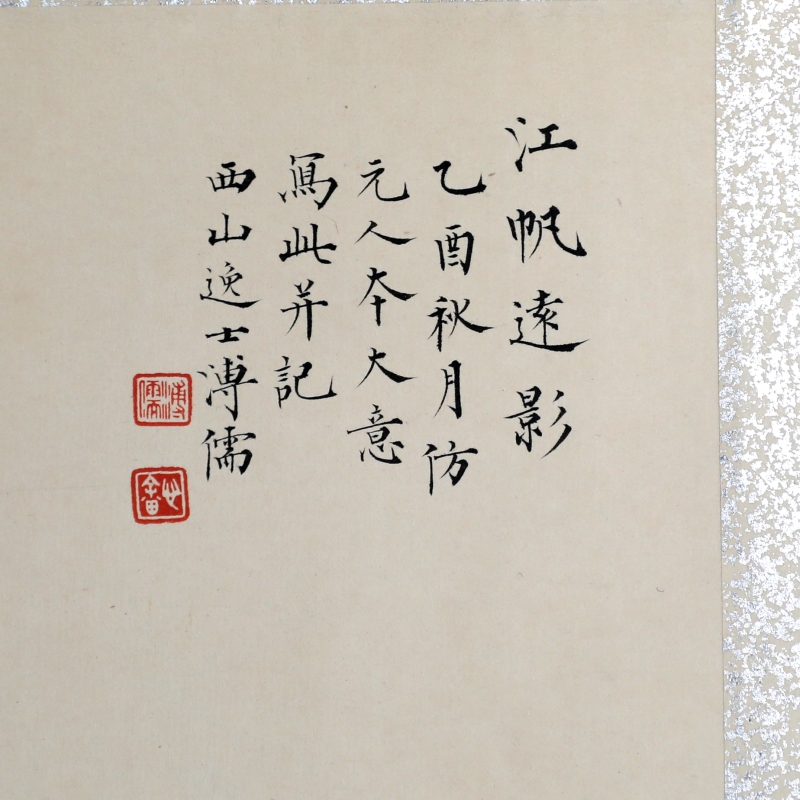 江帆遠影
乙酉秋月仿
元人本大意
寫此并記
西山逸士溥儒
溥儒
心畬